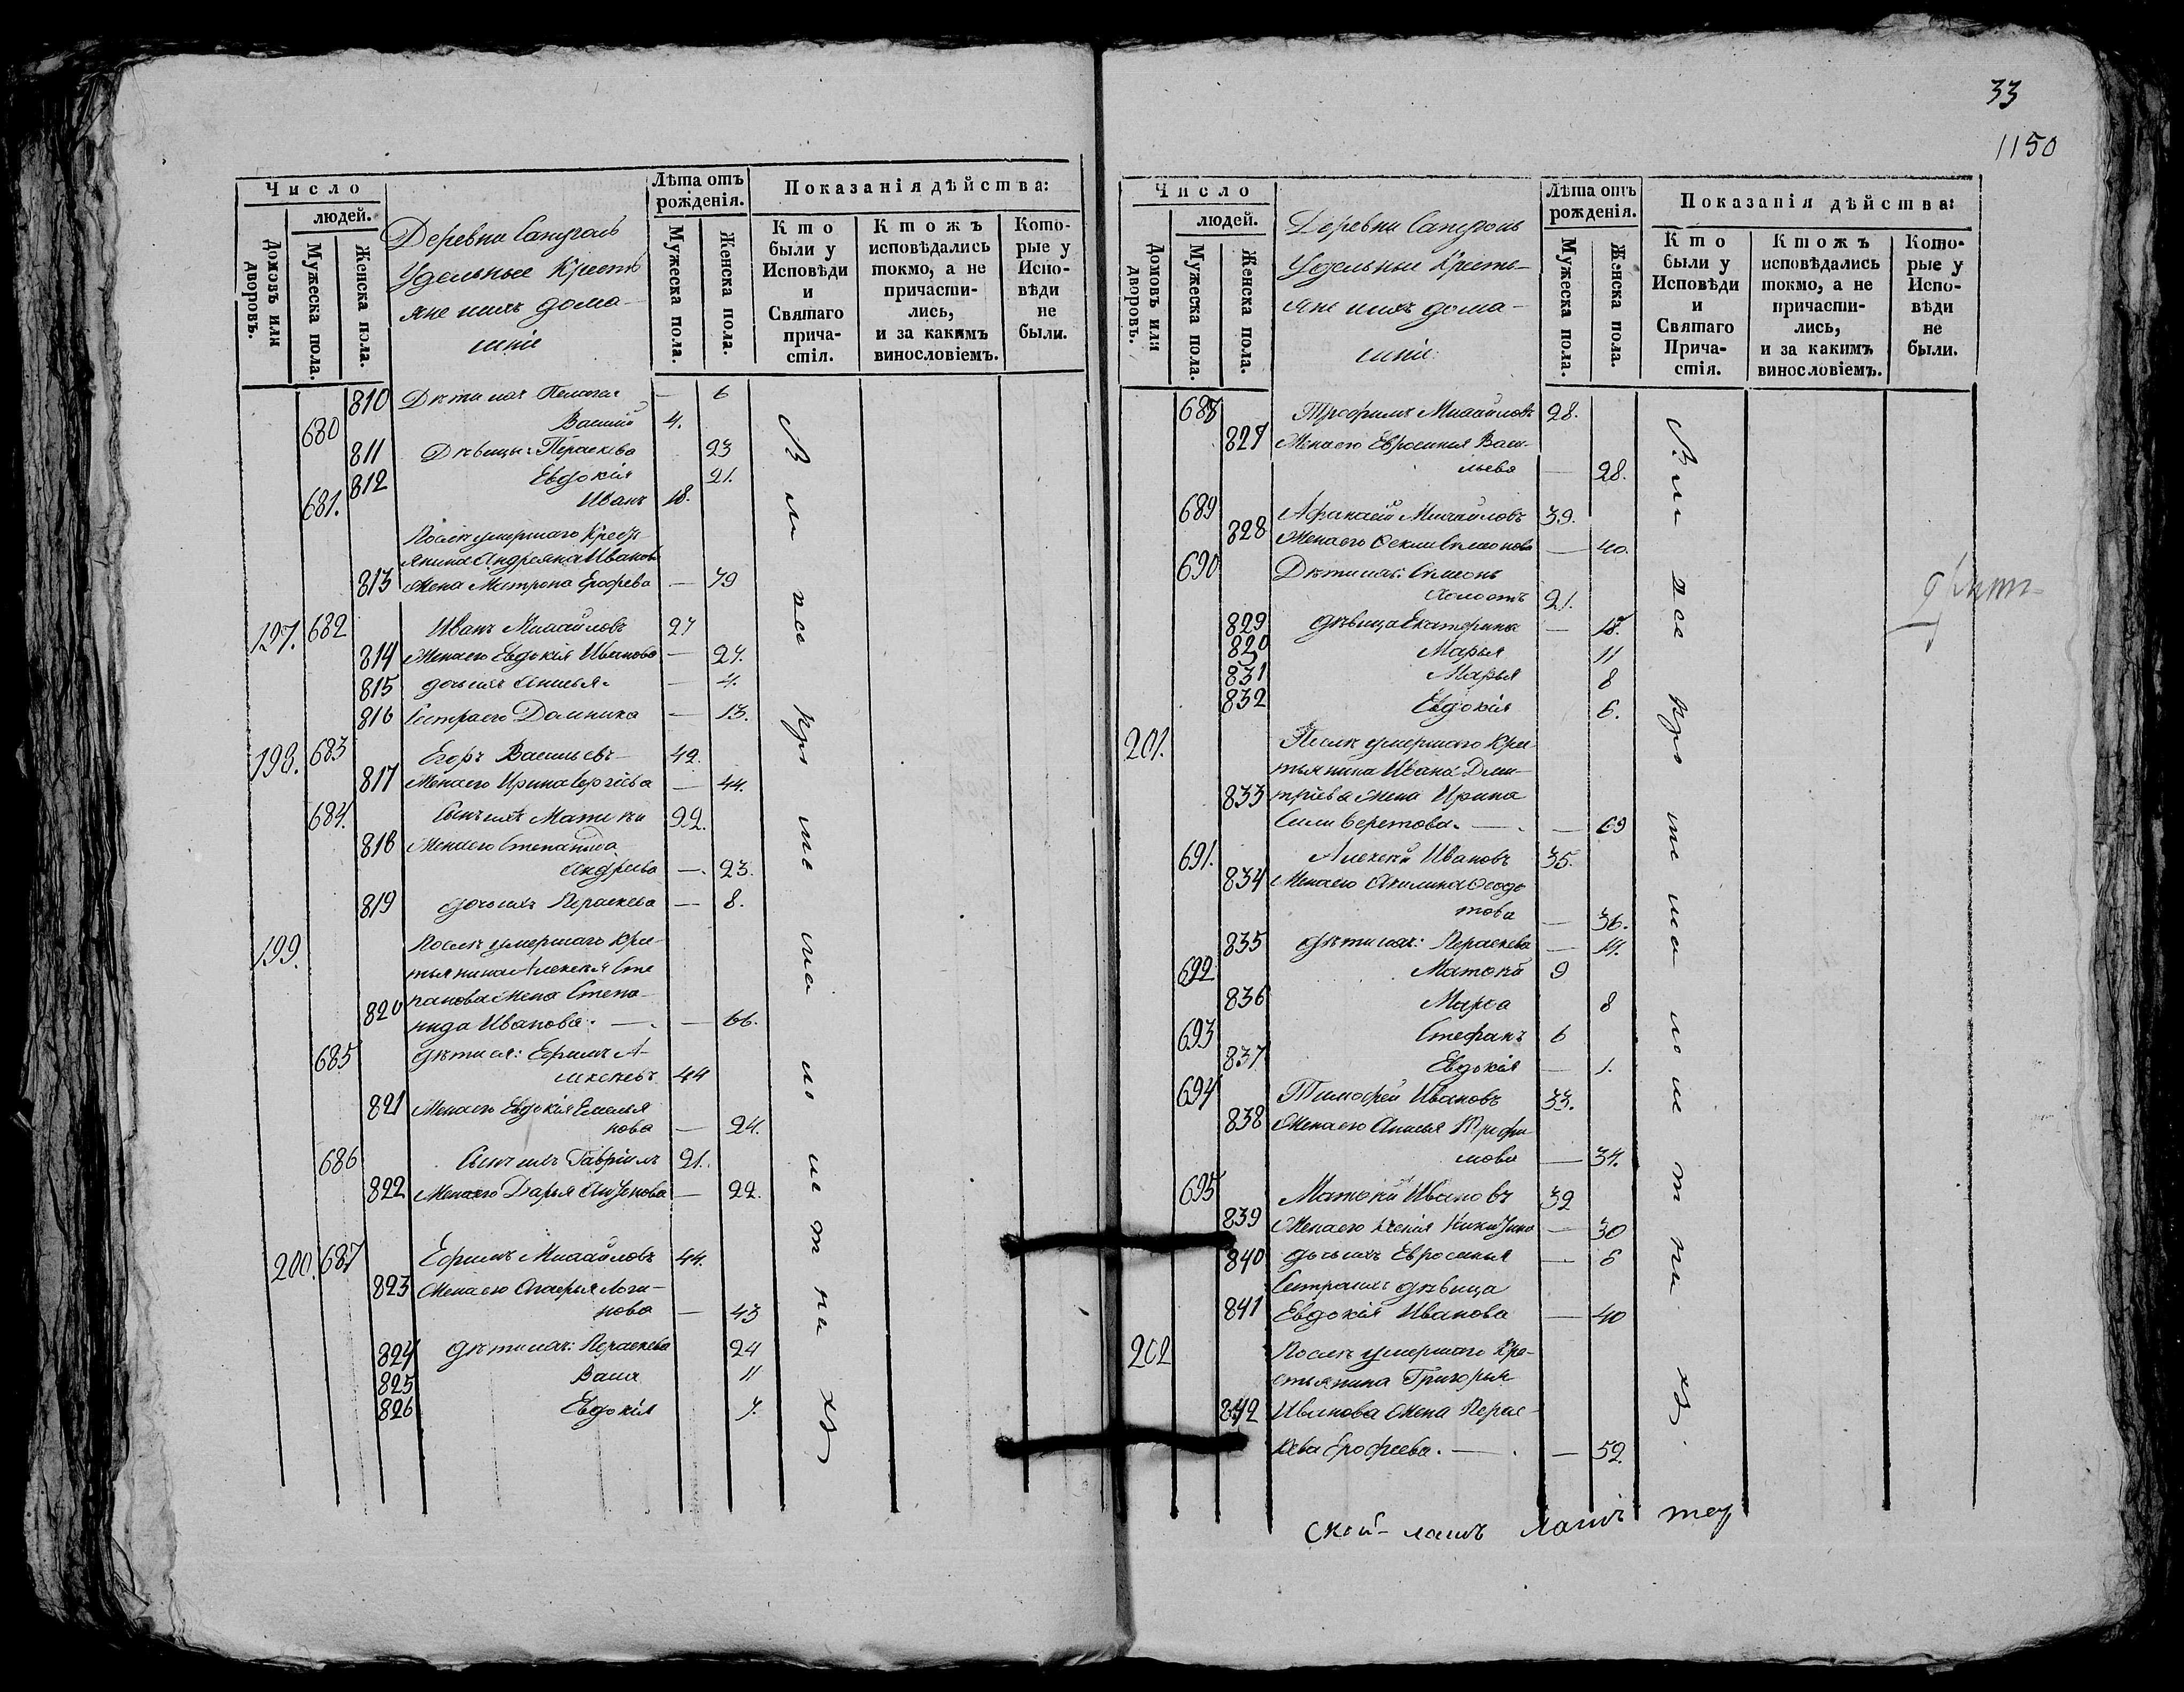 Число
людей.
Домовъ или дворовъ.
Мужеска пола.
Женска пола.
Деревни
Удельные Кресть
яне ихъ дома-
шніе
Лѣта отъ рожденія.
Мужеска пола.
Женска пола.
Показанія дѣйства:
Кто были у Исповѣди и Святаго причастія.
Ктожъ исповѣдались токмо, а не причастились, и за какимъ винословіемъ.
Которые у Исповѣди не были.
810 Дѣти ихъ Пелагея — 6
680 Василий 4.
811 Дѣвицы: Параскева 23
812 Евдокія 21.
681. Иванъ 18.
Послѣ умершаго Кресть
янина Андреяна Иванов
813 Жена Матрона Ерофеева — 79
197. 682 Иванъ Михайловъ 27
814 Жена его Евдокія Иванова — 27.
815 дочь ихъ Анисья — 4.
816 Сестра его Домника — 13.
198. 683 Егоръ Васильевъ 42.
817 Жена его Ирина Сергеева — 44.
684. Сынъ ихъ Матвѣй 22.
818 Жена его Степанида
Андреева — 23.
819 дочь ихъ Параскева — 8.
199. Послѣ умершаго Крес-
тьянина Алексея Сте
820 панова Жена Степа-
нида Иванова. — 66.
685 дѣти ея: Ефимъ А-
лексеевъ 44
821 Жена его Евдокія Емелья
нова — 24.
686 Сынъ ихъ Гавріилъ 21.
822 Жена его Дарья — 22.
200. 687 Ефимъ Михайловъ 44.
823 Жена его Логи-
нова — 43
824 дѣти ихъ: Параскева 24
825 Васса 11
826 Евдокія 7.
33
1150
Число
людей.
Домовъ или дворовъ.
Мужеска пола.
Женска пола.
Деревни
Удельные Кресть-
яне ихъ дома-
шніе.
Лѣта отъ рожденія.
Мужеска пола.
Женска пола.
Показанія дѣйства:
Кто были у Исповѣди и Святаго Причастія.
Ктожъ исповѣдались токмо, а не причастились, и за какимъ винословіемъ.
Которые у Исповѣди не были.
688 Трофимъ Михайловъ 28.
827 Жена его Евросинья Васи-
льева — 28.
689 Афанасій Михайловъ 39.
828 Жена его Симеонова — 40.
690 Дѣти ихъ: Симеонъ
холостъ 21.
829 дѣвица Екатерина — 18.
820 Марья 11
831 Марья 8
832 Евдокія 6.
201. Послѣ умершаго Крес-
тьянина Ивана Дми-
833 тріева Жена Ирина
Силиверстова. — 69
691. Алексей Ивановъ 35.
834 Жена его Акилина Федо
това — 36.
835 дѣти ихъ: Параскева — 14.
692 Матвей 9
836 Марѳа 8
693 Стефанъ 6
837 Евдокія — 1.
694 Тимофей Ивановъ 33.
838 Жена его Анисья Трофи
мова — 34.
695 Матвей Ивановъ 32
839 Жена его Ксенія — 30
840 дочь ихъ Евросинья — 6
Сестра ихъ дѣвица
841 Евдокія Иванова — 40
202 Послѣ умершаго Кре-
стьянина Григорья
842 Иванова Жена Парас-
кева Ерофеева. — 52.